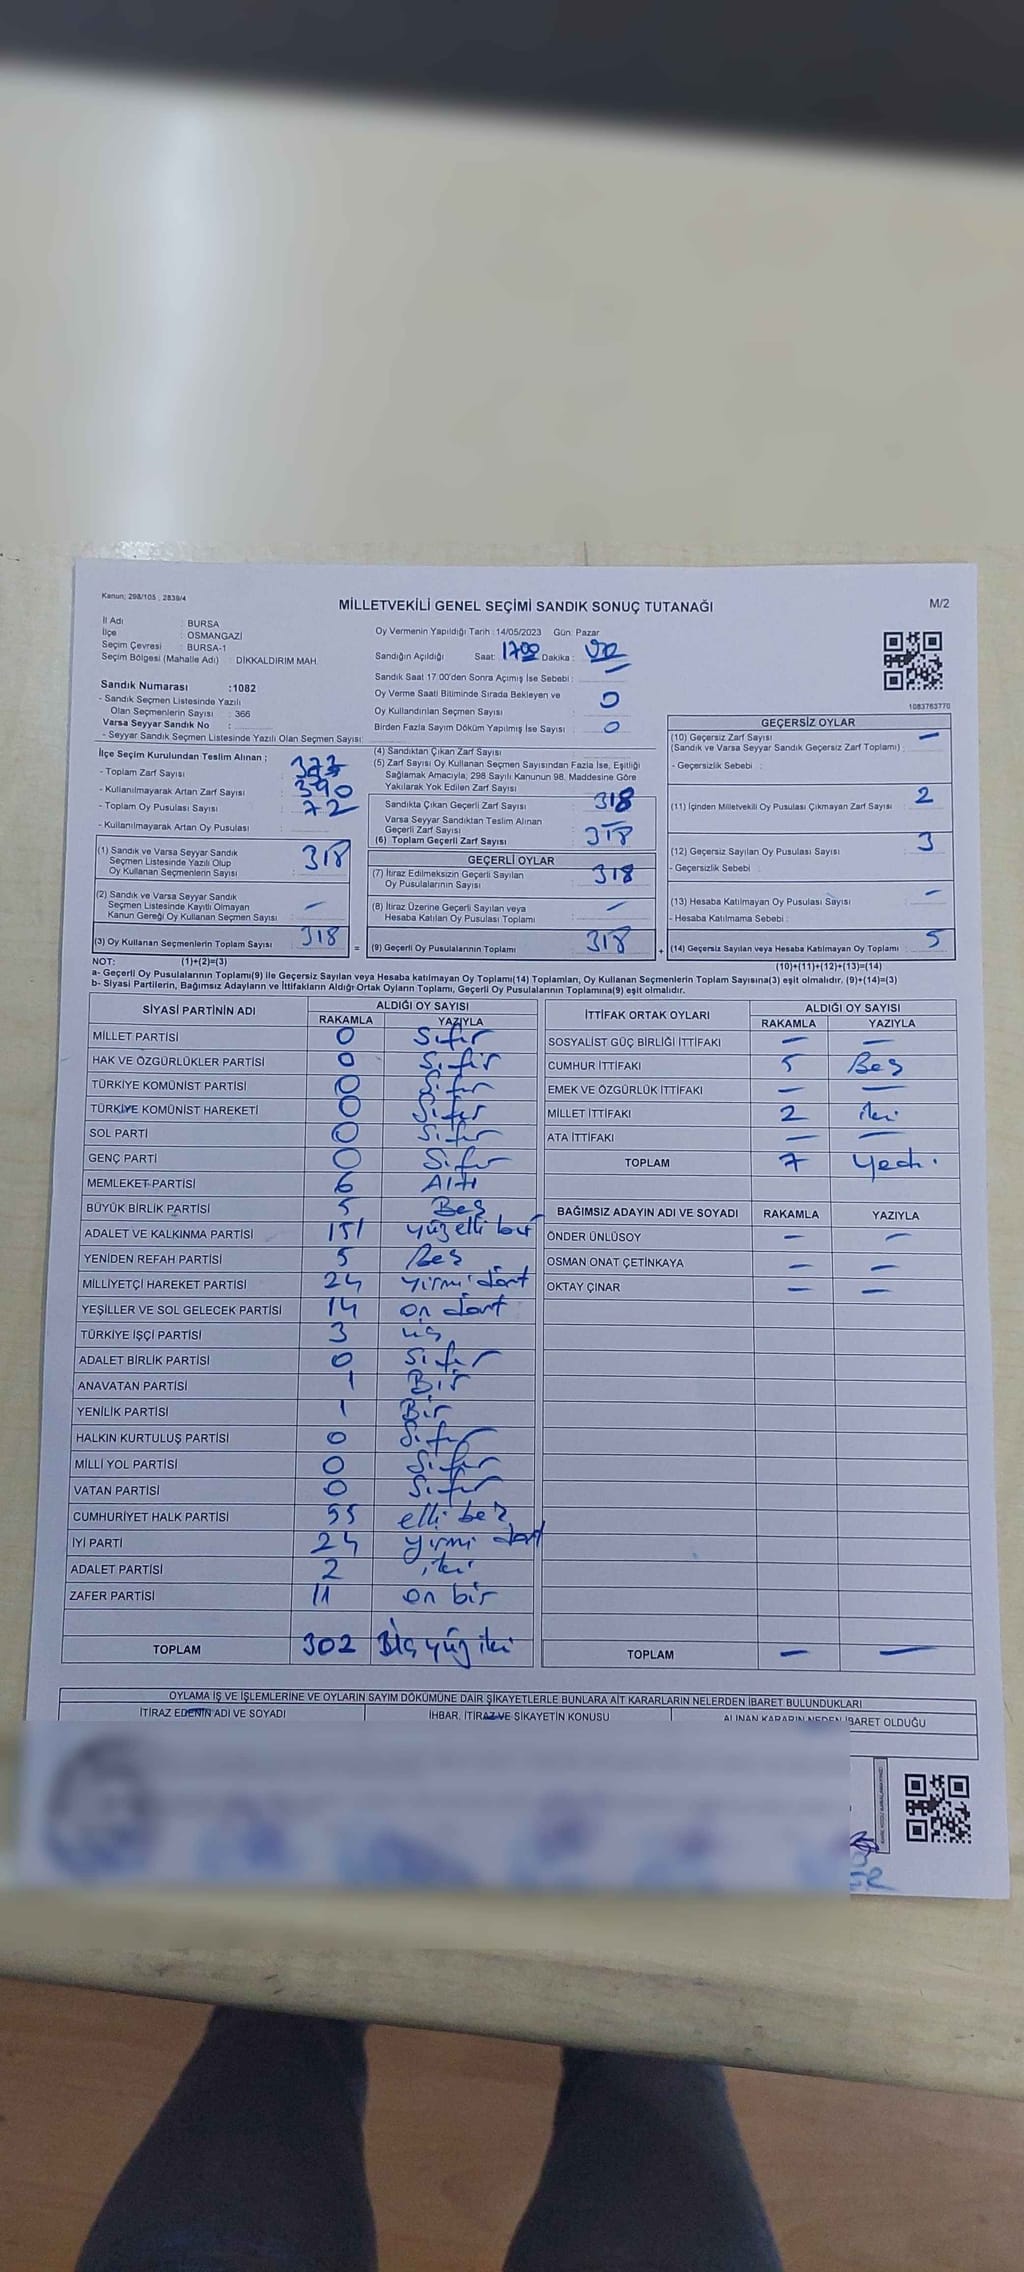 Kanun; 298/105 , 2839/4
MİLLETVEKİLİ GENEL SEÇİMİ SANDIK SONUÇ TUTANAĞI
M/2
İl Adı : BURSA
İlçe : OSMANGAZİ
Seçim Çevresi : BURSA-1
Seçim Bölgesi (Mahalle Adı) : DİKKALDIRIM MAH.
Sandık Numarası :1082
- Sandık Seçmen Listesinde Yazılı
Olan Seçmenlerin Sayısı : 366
Varsa Seyyar Sandık No :
- Seyyar Sandık Seçmen Listesinde Yazılı Olan Seçmen Sayısı:
Oy Vermenin Yapıldığı Tarih : 14/05/2023 Gün: Pazar
Sandığın Açıldığı Saat: 1700 Dakika :
Sandık Saat 17.00'den Sonra Açımış İse Sebebi :
Oy Verme Saati Bitiminde Sırada Bekleyen ve
Oy Kullandırılan Seçmen Sayısı : 0
Birden Fazla Sayım Döküm Yapılmış İse Sayısı : 0
1083763770
İlçe Seçim Kurulundan Teslim Alınan ;
- Toplam Zarf Sayısı : 377
- Kullanılmayarak Artan Zarf Sayısı :
- Toplam Oy Pusulası Sayısı : 390
- Kullanılmayarak Artan Oy Pusulası : 72
(1) Sandık ve Varsa Seyyar Sandık
Seçmen Listesinde Yazılı Olup
Oy Kullanan Seçmenlerin Sayısı : 318
(2) Sandık ve Varsa Seyyar Sandık
Seçmen Listesinde Kayıtlı Olmayan
Kanun Gereği Oy Kullanan Seçmen Sayısı : –
(3) Oy Kullanan Seçmenlerin Toplam Sayısı : 318
=
(4) Sandıktan Çıkan Zarf Sayısı
(5) Zarf Sayısı Oy Kullanan Seçmen Sayısından Fazla İse, Eşitliği
Sağlamak Amacıyla, 298 Sayılı Kanunun 98. Maddesine Göre
Yakılarak Yok Edilen Zarf Sayısı :
Sandıkta Çıkan Geçerli Zarf Sayısı : 318
Varsa Seyyar Sandıktan Teslim Alınan
Geçerli Zarf Sayısı : –
(6) Toplam Geçerli Zarf Sayısı : 318
GEÇERLİ OYLAR
(7) İtiraz Edilmeksizin Geçerli Sayılan
Oy Pusulalarının Sayısı : 318
(8) İtiraz Üzerine Geçerli Sayılan veya
Hesaba Katılan Oy Pusulası Toplamı : –
(9) Geçerli Oy Pusulalarının Toplamı : 318
+
GEÇERSİZ OYLAR
(10) Geçersiz Zarf Sayısı –
(Sandık ve Varsa Seyyar Sandık Geçersiz Zarf Toplamı) :
- Geçersizlik Sebebi :
(11) İçinden Milletvekili Oy Pusulası Çıkmayan Zarf Sayısı : 2
(12) Geçersiz Sayılan Oy Pusulası Sayısı : 3
- Geçersizlik Sebebi :
(13) Hesaba Katılmayan Oy Pusulası Sayısı : –
- Hesaba Katılmama Sebebi :
(14) Geçersiz Sayılan veya Hesaba Katılmayan Oy Toplamı : 5
NOT: (1)+(2)=(3)
(10)+(11)+(12)+(13)=(14)
a- Geçerli Oy Pusulasının Toplamı(9) ile Geçersiz Sayılan veya Hesaba katılmayan Oy Toplamı(14) Toplamları, Oy Kullanan Seçmenlerin Toplam Sayısına(3) eşit olmalıdır. (9)+(14)=(3)
b- Siyasi Partilerin, Bağımsız Adayların ve İttifakların Aldığı Ortak Oyların Toplamı, Geçerli Oy Pusulalarının Toplamına(9) eşit olmalıdır.
SİYASİ PARTİNİN ADI
ALDIĞI OY SAYISI
RAKAMLA YAZIYLA
MİLLET PARTİSİ 0 Sıfır
HAK VE ÖZGÜRLÜKLER PARTİSİ 0 Sıfır
TÜRKİYE KOMÜNİST PARTİSİ 0 Sıfır
TÜRKİYE KOMÜNİST HAREKETİ 0 Sıfır
SOL PARTİ 0 Sıfır
GENÇ PARTİ 0 Sıfır
MEMLEKET PARTİSİ 6 Altı
BÜYÜK BİRLİK PARTİSİ 5 Beş
ADALET VE KALKINMA PARTİSİ 151 yüzelli bir
YENİDEN REFAH PARTİSİ 5 Beş
MİLLİYETÇİ HAREKET PARTİSİ 24 yirmi dört
YEŞİLLER VE SOL GELECEK PARTİSİ 14 on dört
TÜRKİYE İŞÇİ PARTİSİ 3 üç
ADALET BİRLİK PARTİSİ 0 Sıfır
ANAVATAN PARTİSİ 1 Bir
YENİLİK PARTİSİ 1 Bir
HALKIN KURTULUŞ PARTİSİ 0 Sıfır
MİLLİ YOL PARTİSİ 0 Sıfır
VATAN PARTİSİ 0 Sıfır
CUMHURİYET HALK PARTİSİ 55 elli beş
İYİ PARTİ 24 yirmi dört
ADALET PARTİSİ 2 iki
ZAFER PARTİSİ 11 on bir
TOPLAM 302 Üç yüz iki
İTTİFAK ORTAK OYLARI
ALDIĞI OY SAYISI
RAKAMLA YAZIYLA
SOSYALİST GÜÇ BİRLİĞİ İTTİFAKI – –
CUMHUR İTTİFAKI 5 Beş
EMEK VE ÖZGÜRLÜK İTTİFAKI – –
MİLLET İTTİFAKI 2 iki
ATA İTTİFAKI – –
TOPLAM 7 Yedi.
BAĞIMSIZ ADAYIN ADI VE SOYADI RAKAMLA YAZIYLA
ÖNDER ÜNLÜSOY – –
OSMAN ONAT ÇETİNKAYA – –
OKTAY ÇINAR – –
TOPLAM – –
OYLAMA İŞ VE İŞLEMLERİNE VE OYLARIN SAYIM DÖKÜMÜNE DAİR ŞİKAYETLERLE BUNLARA AİT KARARLARIN NELERDEN İBARET BULUNDUKLARI
İTİRAZ EDENİN ADI VE SOYADI
İHBAR, İTİRAZ VE ŞİKAYETİN KONUSU
ALINAN KARARIN NEDEN İBARET OLDUĞU